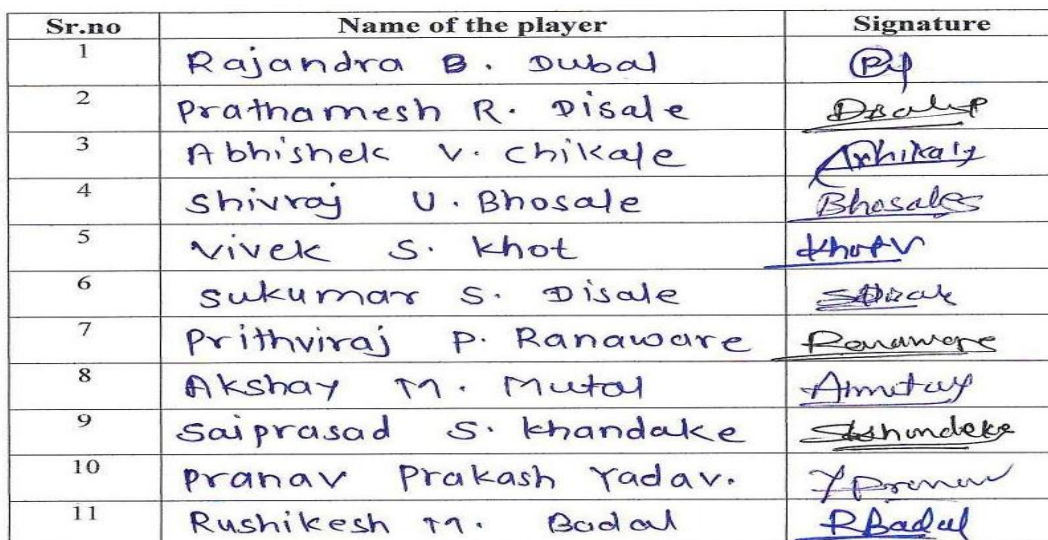 Sr.no Name of the player Signature
1 Rajandra B. Dubal
2 Prathamesh R. Disale
3 Abhishek V. Chikale
4 Shivraj U. Bhosale Bhosales
5 Vivek S. Khot KhotV
6 Sukumar S. Disale
7 Prithviraj P. Ranaware Ranaware
8 Akshay M. Mutal
9 Saiprasad S. Khandake
10 Pranav Prakash Yadav. Y Pranav
11 Rushikesh M. Badal RBadal